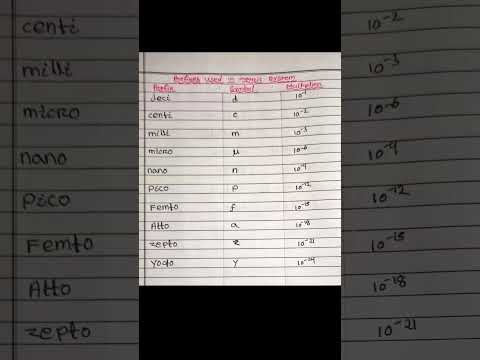 Prefixes used in metric system
Prefix Symbol Multiplier
deci d 10⁻¹
centi c 10⁻²
milli m 10⁻³
micro μ 10⁻⁶
nano n 10⁻⁹
pico p 10⁻¹²
Femto f 10⁻¹⁵
Atto a 10⁻¹⁸
zepto z 10⁻²¹
yocto y 10⁻²⁴
centi 10⁻²
milli 10⁻³
micro 10⁻⁶
nano 10⁻⁹
pico 10⁻¹²
Femto 10⁻¹⁵
Atto 10⁻¹⁸
zepto 10⁻²¹